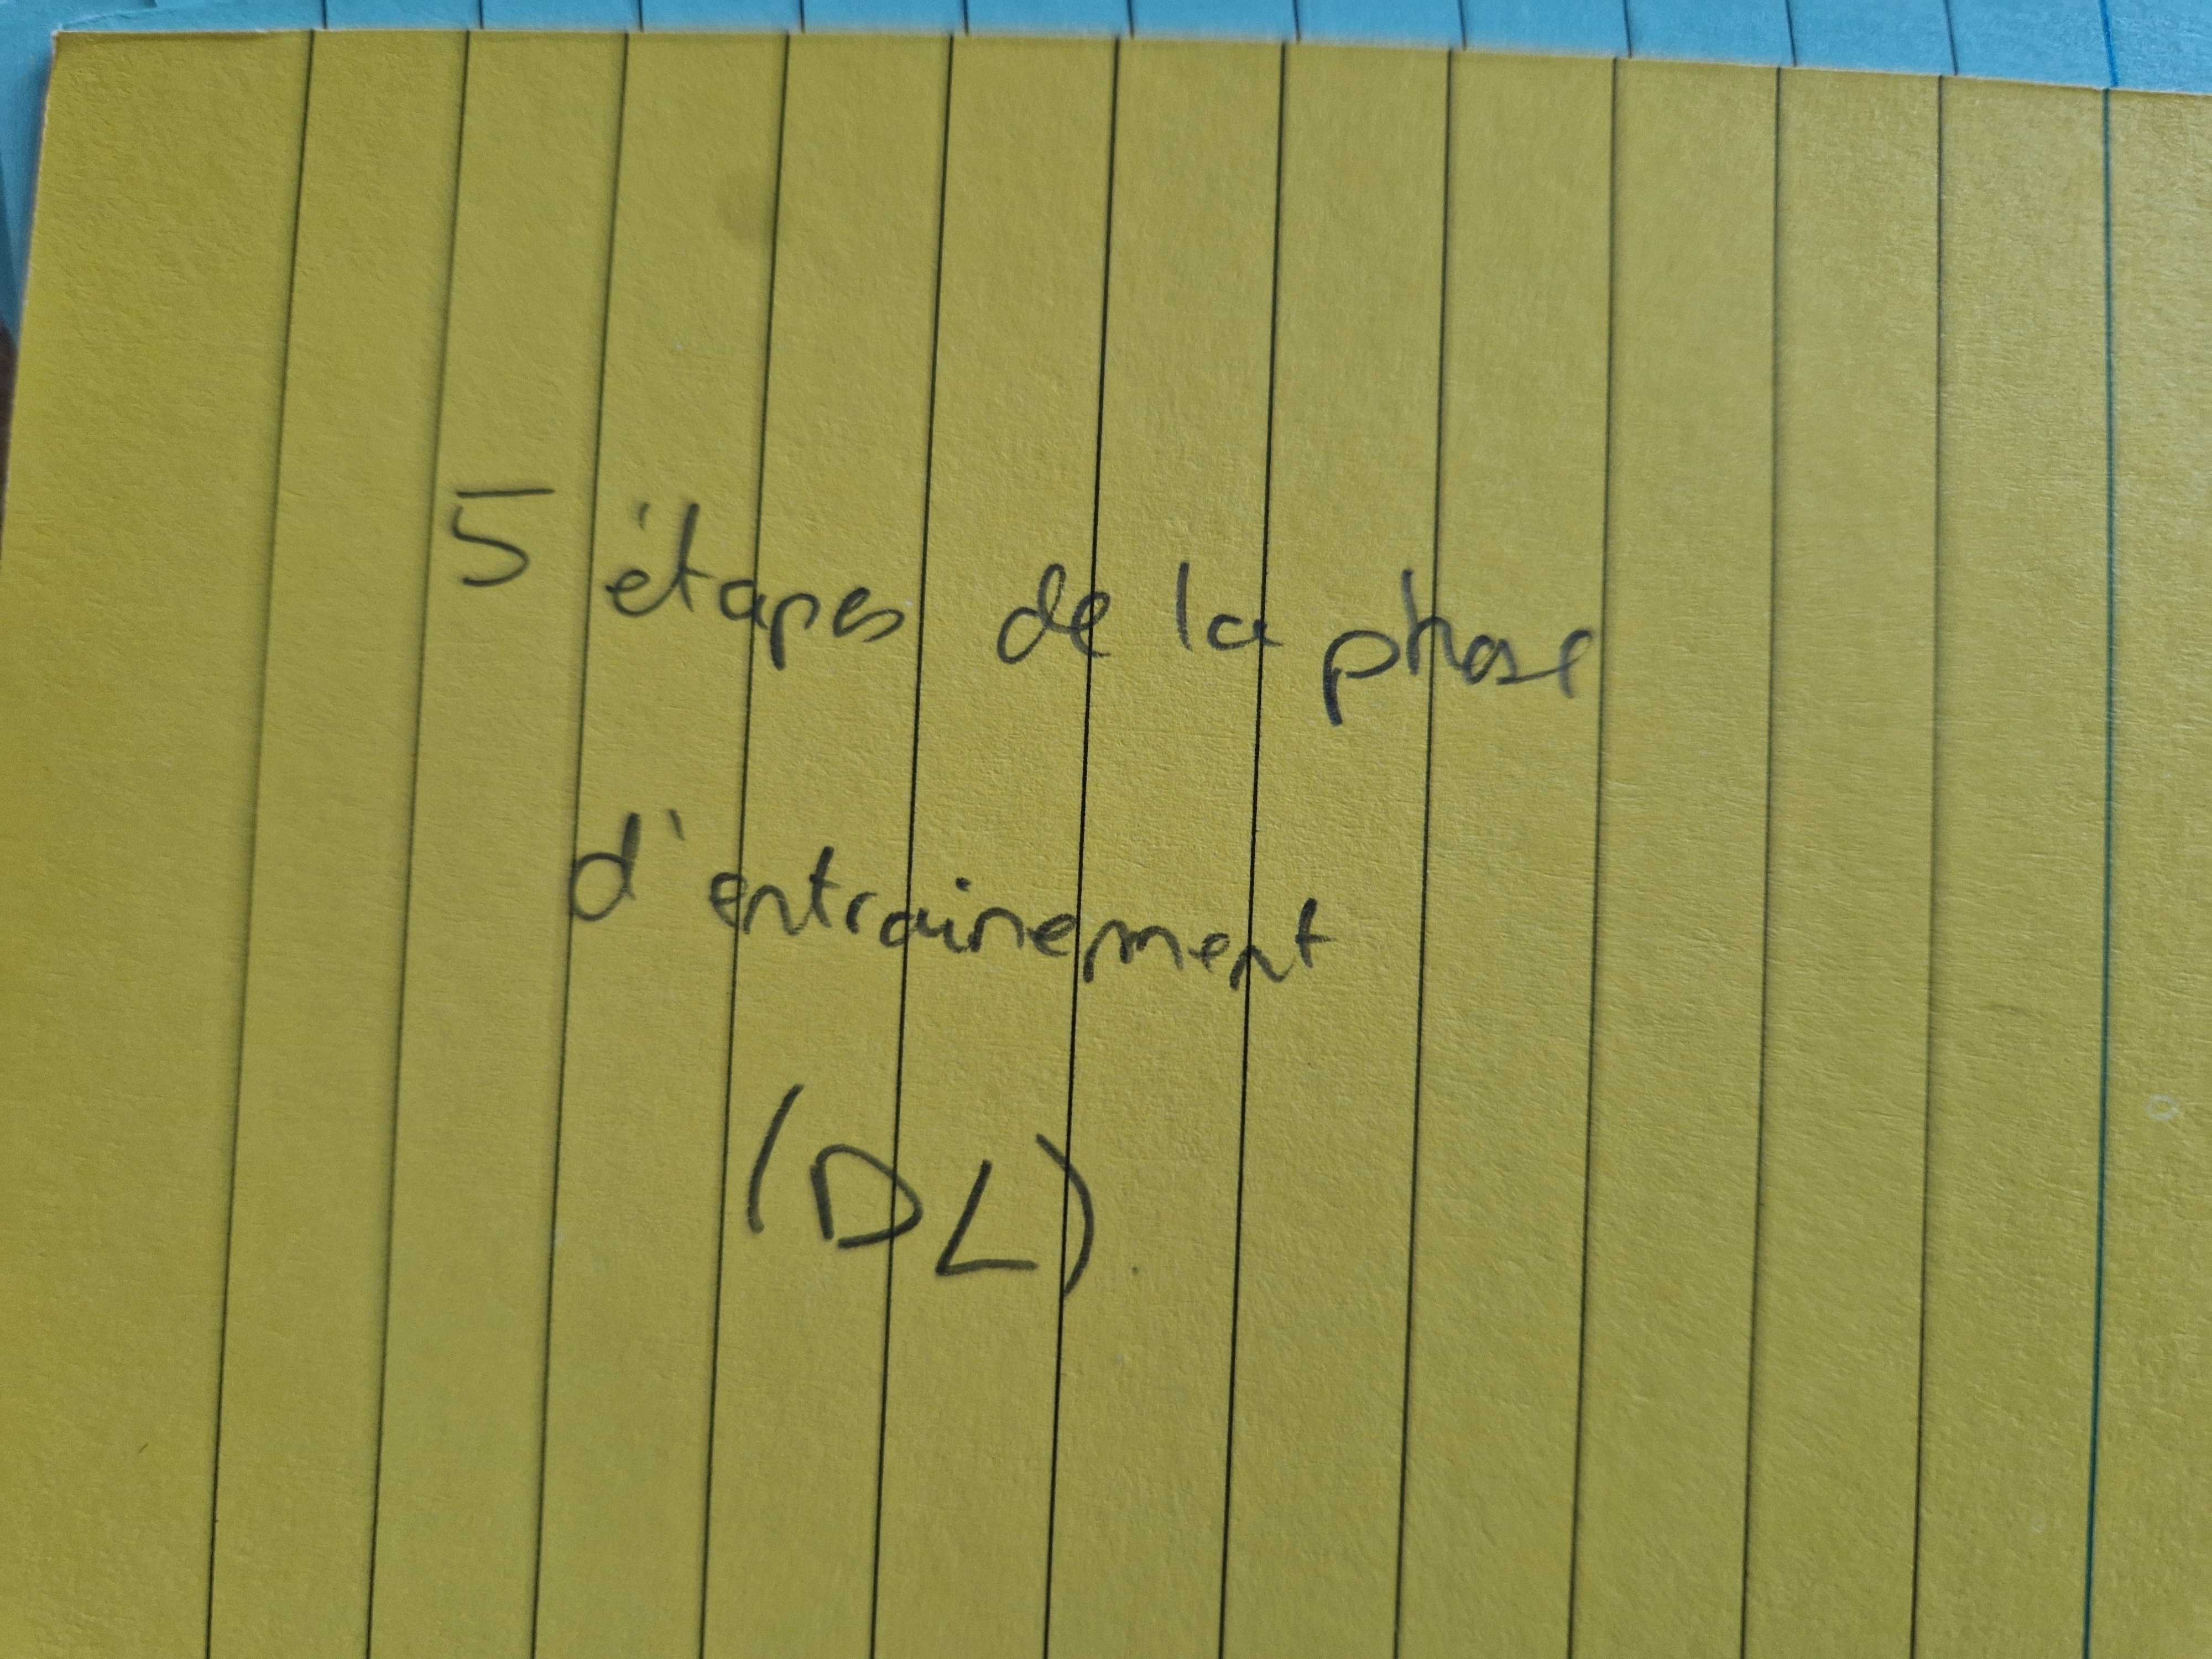 5 étapes de la phase
d'entrainement
(DL).